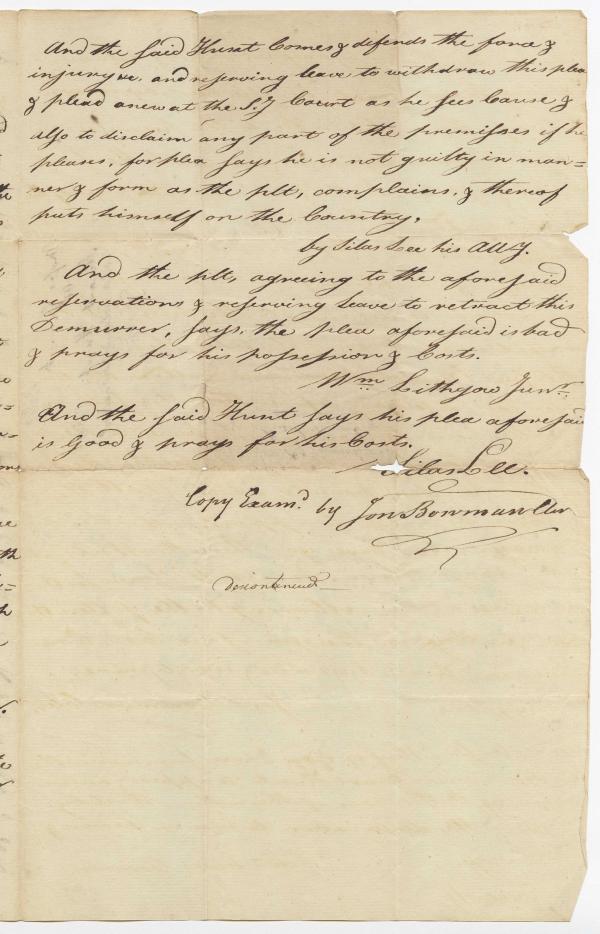 And the said Hunt Comes & defends the force &
injury &c. and reserving leave to withdraw this plea
& plead anew at the S.J Court as he sees Cause &
also to disclaim any part of the premisses if he
pleases, for plea says he is not guilty in man=
ner & form as the plt, complains, & thereof
puts himself on the Country,
by Silas Lee his Atty.
And the plt, agreeing to the aforesaid
reservations & reserving leave to retract this
Demurrer, says, the plea aforesaid is bad
& prays for his possession & Costs.
Wm Lithgow Junr.
And the said Hunt says his plea aforesaid
is Good & prays for his Costs.
Silas Lee.
Copy Examd by Jon Bowman Cler
Discontinued